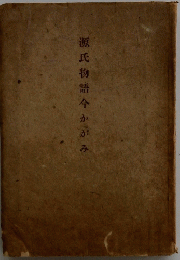 源氏物語今かゞみ